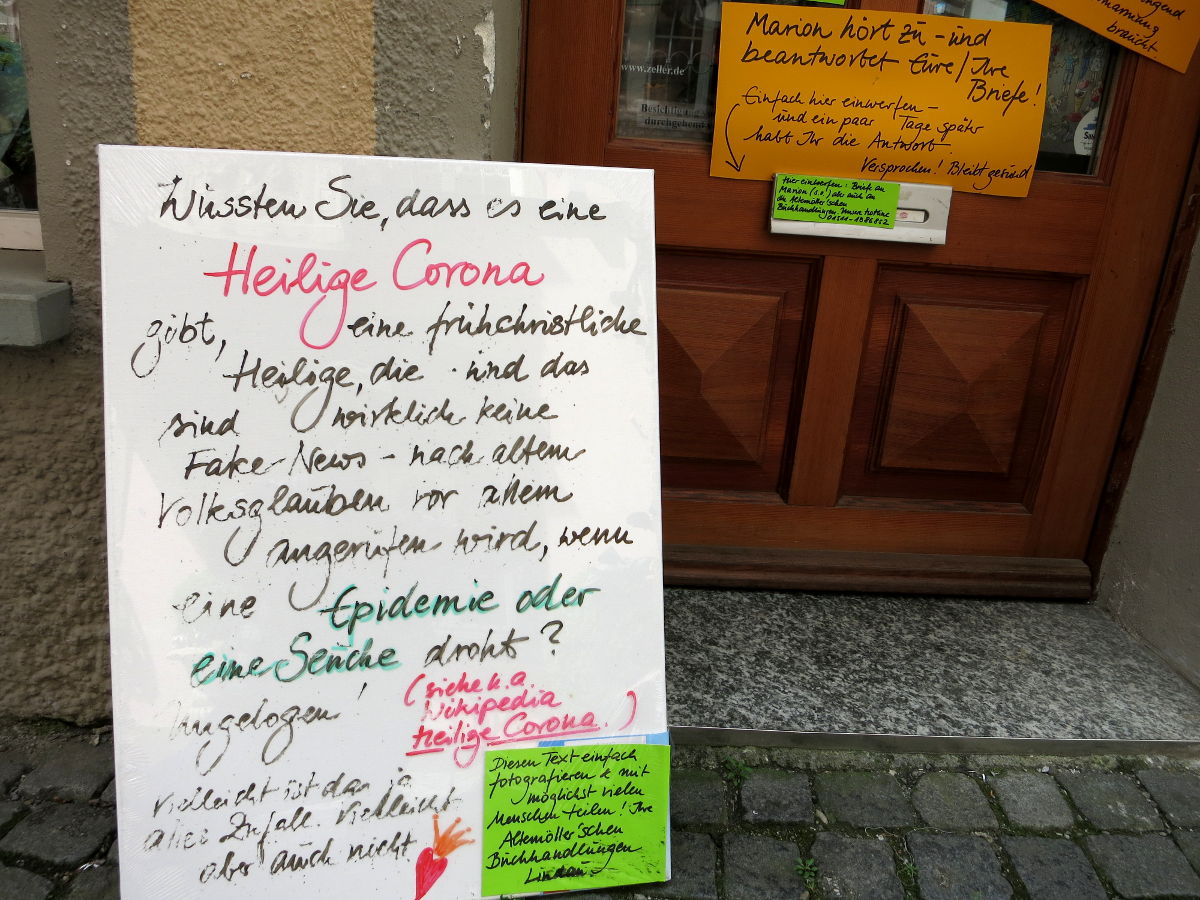 Wussten Sie, dass es eine
Heilige Corona
gibt, eine frühchristliche
Heilige, die und das
sind wirklich keine
Fake-News - nach altem
Volksglauben vor allem
angerufen wird, wenn
eine Epidemie oder
eine Seuche droht?
Ungelogen!
(siehe u.a.
Wikipedia
Heilige Corona.)
Vielleicht ist das ja
alles Zufall. Vielleicht
aber auch nicht
Diesen Text einfach
fotografieren & mit
möglichst vielen
Menschen teilen! Ihre
Altemöller'schen
Buchhandlungen
Lindau
www.zeller.de
Besichtigung
durchgehend
Marion hört zu - und
beantwortet Eure/Ihre
Briefe!
Einfach hier einwerfen -
und ein paar Tage später
habt Ihr die Antwort.
Versprochen! Bleibt gesund
Hier einwerfen: Briefe an
Marion (s.o.) aber auch an
die Altemöller'schen
Buchhandlungen. Unsere Hotline
braucht